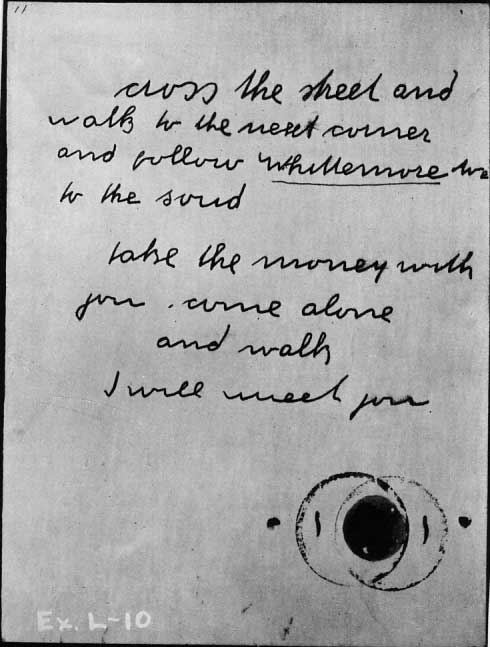 11
cross the street and
walk to the next corner
and follow Whittemore Av
to the soud
take the money with
you . come alone
and walk
I will meet you
Ex. L-10